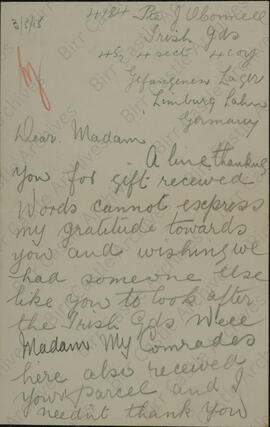 3/5/15
4984 Pte J OConnell
Irish Gds
4 sect 4 coy
Gefangenen Lager
Limburg Lahn
Germany
Dear Madam
A line thanking
You for gift received
Words cannot express
my gratitude towards
you and wishing we
had someone else
like You to look after
the Irish Gds Well
Madam My Comrades
here also received
your parcel and I
needint thank You